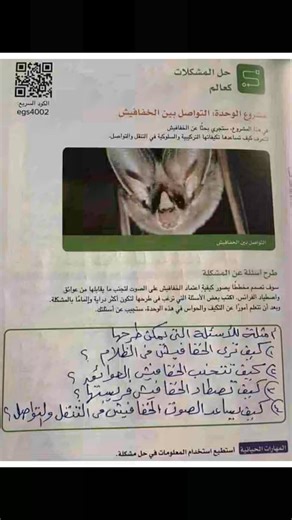 حل المشكلات
كعالم
الكود السريع:
egs4002
مشروع الوحدة: التواصل بين الخفافيش
في هذا المشروع، ستجري بحثًا عن الخفافيش
لتعرف كيف تساعدها تكيفاتها التركيبية والسلوكية في التنقل والتواصل.
التواصل بين الخفافيش
طرح أسئلة عن المشكلة
سوف تصمم مخططًا يصور كيفية اعتماد الخفافيش على الصوت لتجنب ما يقابلها من عوائق
واصطياد الفرائس. اكتب بعض الأسئلة التي ترغب في طرحها لتكون أكثر دراية وإلمامًا بالمشكلة.
وبعد أن تتعلم أمورًا عن التكيف والحواس في هذه الوحدة، ستجيب عن أسئلتك.
أمثلة للأسئلة التى يمكن طرحها
١) كيف ترى الخفافيش فى الظلام ؟
٢) كيف تتجنب الخفافيش العوائق ؟
٣) كيف تصطاد الخفافيش فريستها ؟
٤) كيف يساعد الصوت الخفافيش فى التنقل والتواصل ؟
المهارات الحياتية أستطيع استخدام المعلومات في حل مشكلة.